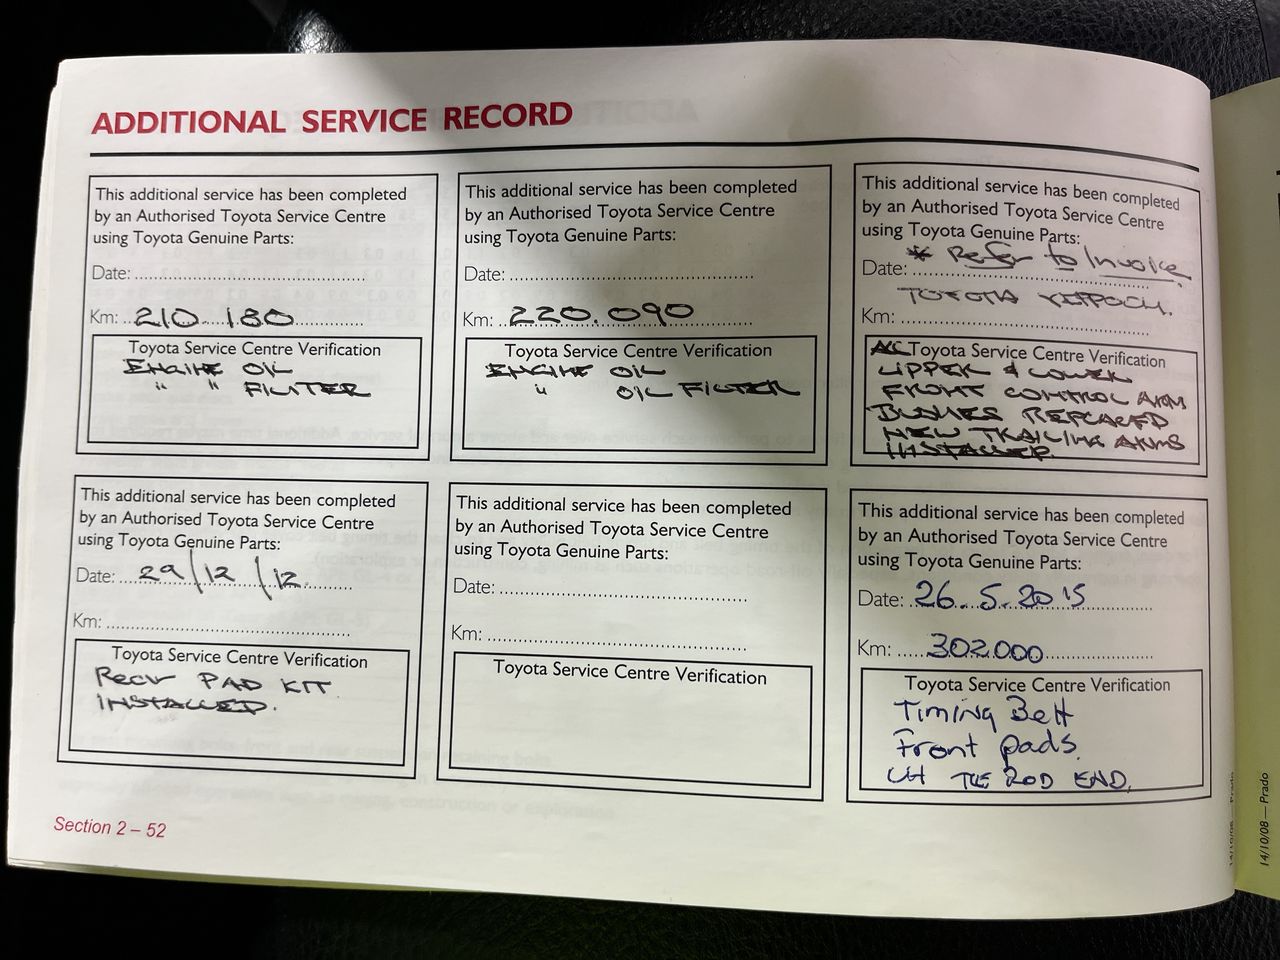 ADDITIONAL SERVICE RECORD
This additional service has been completed
by an Authorised Toyota Service Centre
using Toyota Genuine Parts:
Date:
Km: 210 180
Toyota Service Centre Verification
ENGINE OIL
" " FILTER
This additional service has been completed
by an Authorised Toyota Service Centre
using Toyota Genuine Parts:
Date:
Km: 220.090
Toyota Service Centre Verification
ENGINE OIL
" OIL FILTER
This additional service has been completed
by an Authorised Toyota Service Centre
using Toyota Genuine Parts:
* Refer to Invoice
Date:
TOYOTA
Km:
Toyota Service Centre Verification
UPPER & LOWER
FRONT CONTROL ARM
BUSHES REPLACED
NEW TRAILING ARMS
INSTALLED.
This additional service has been completed
by an Authorised Toyota Service Centre
using Toyota Genuine Parts:
Date: 29/12/12
Km:
Toyota Service Centre Verification
PAD KIT
INSTALLED.
This additional service has been completed
by an Authorised Toyota Service Centre
using Toyota Genuine Parts:
Date:
Km:
Toyota Service Centre Verification
This additional service has been completed
by an Authorised Toyota Service Centre
using Toyota Genuine Parts:
Date: 26.5.2015
Km: 302000
Toyota Service Centre Verification
Timing Belt
Front pads.
LH TIE ROD END.
Section 2 – 52
14/10/08 — Prado